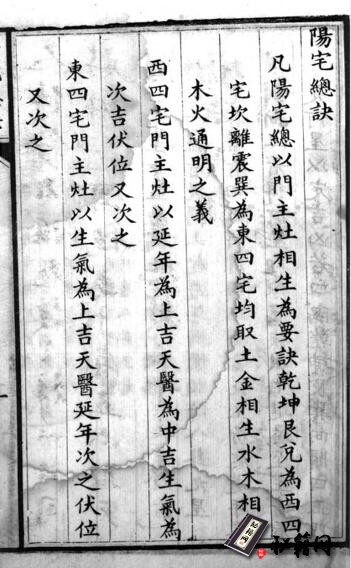 陽宅總訣
凡陽宅總以門主灶相生為要訣乾坤艮兌為西四
宅坎離震巽為東四宅均取土金相生水木相
木火通明之義
西四宅門主灶以延年為上吉天醫為中吉生氣為
次吉伏位又次之
東四宅門主灶以生氣為上吉天醫延年次之伏位
又次之
秘籍网